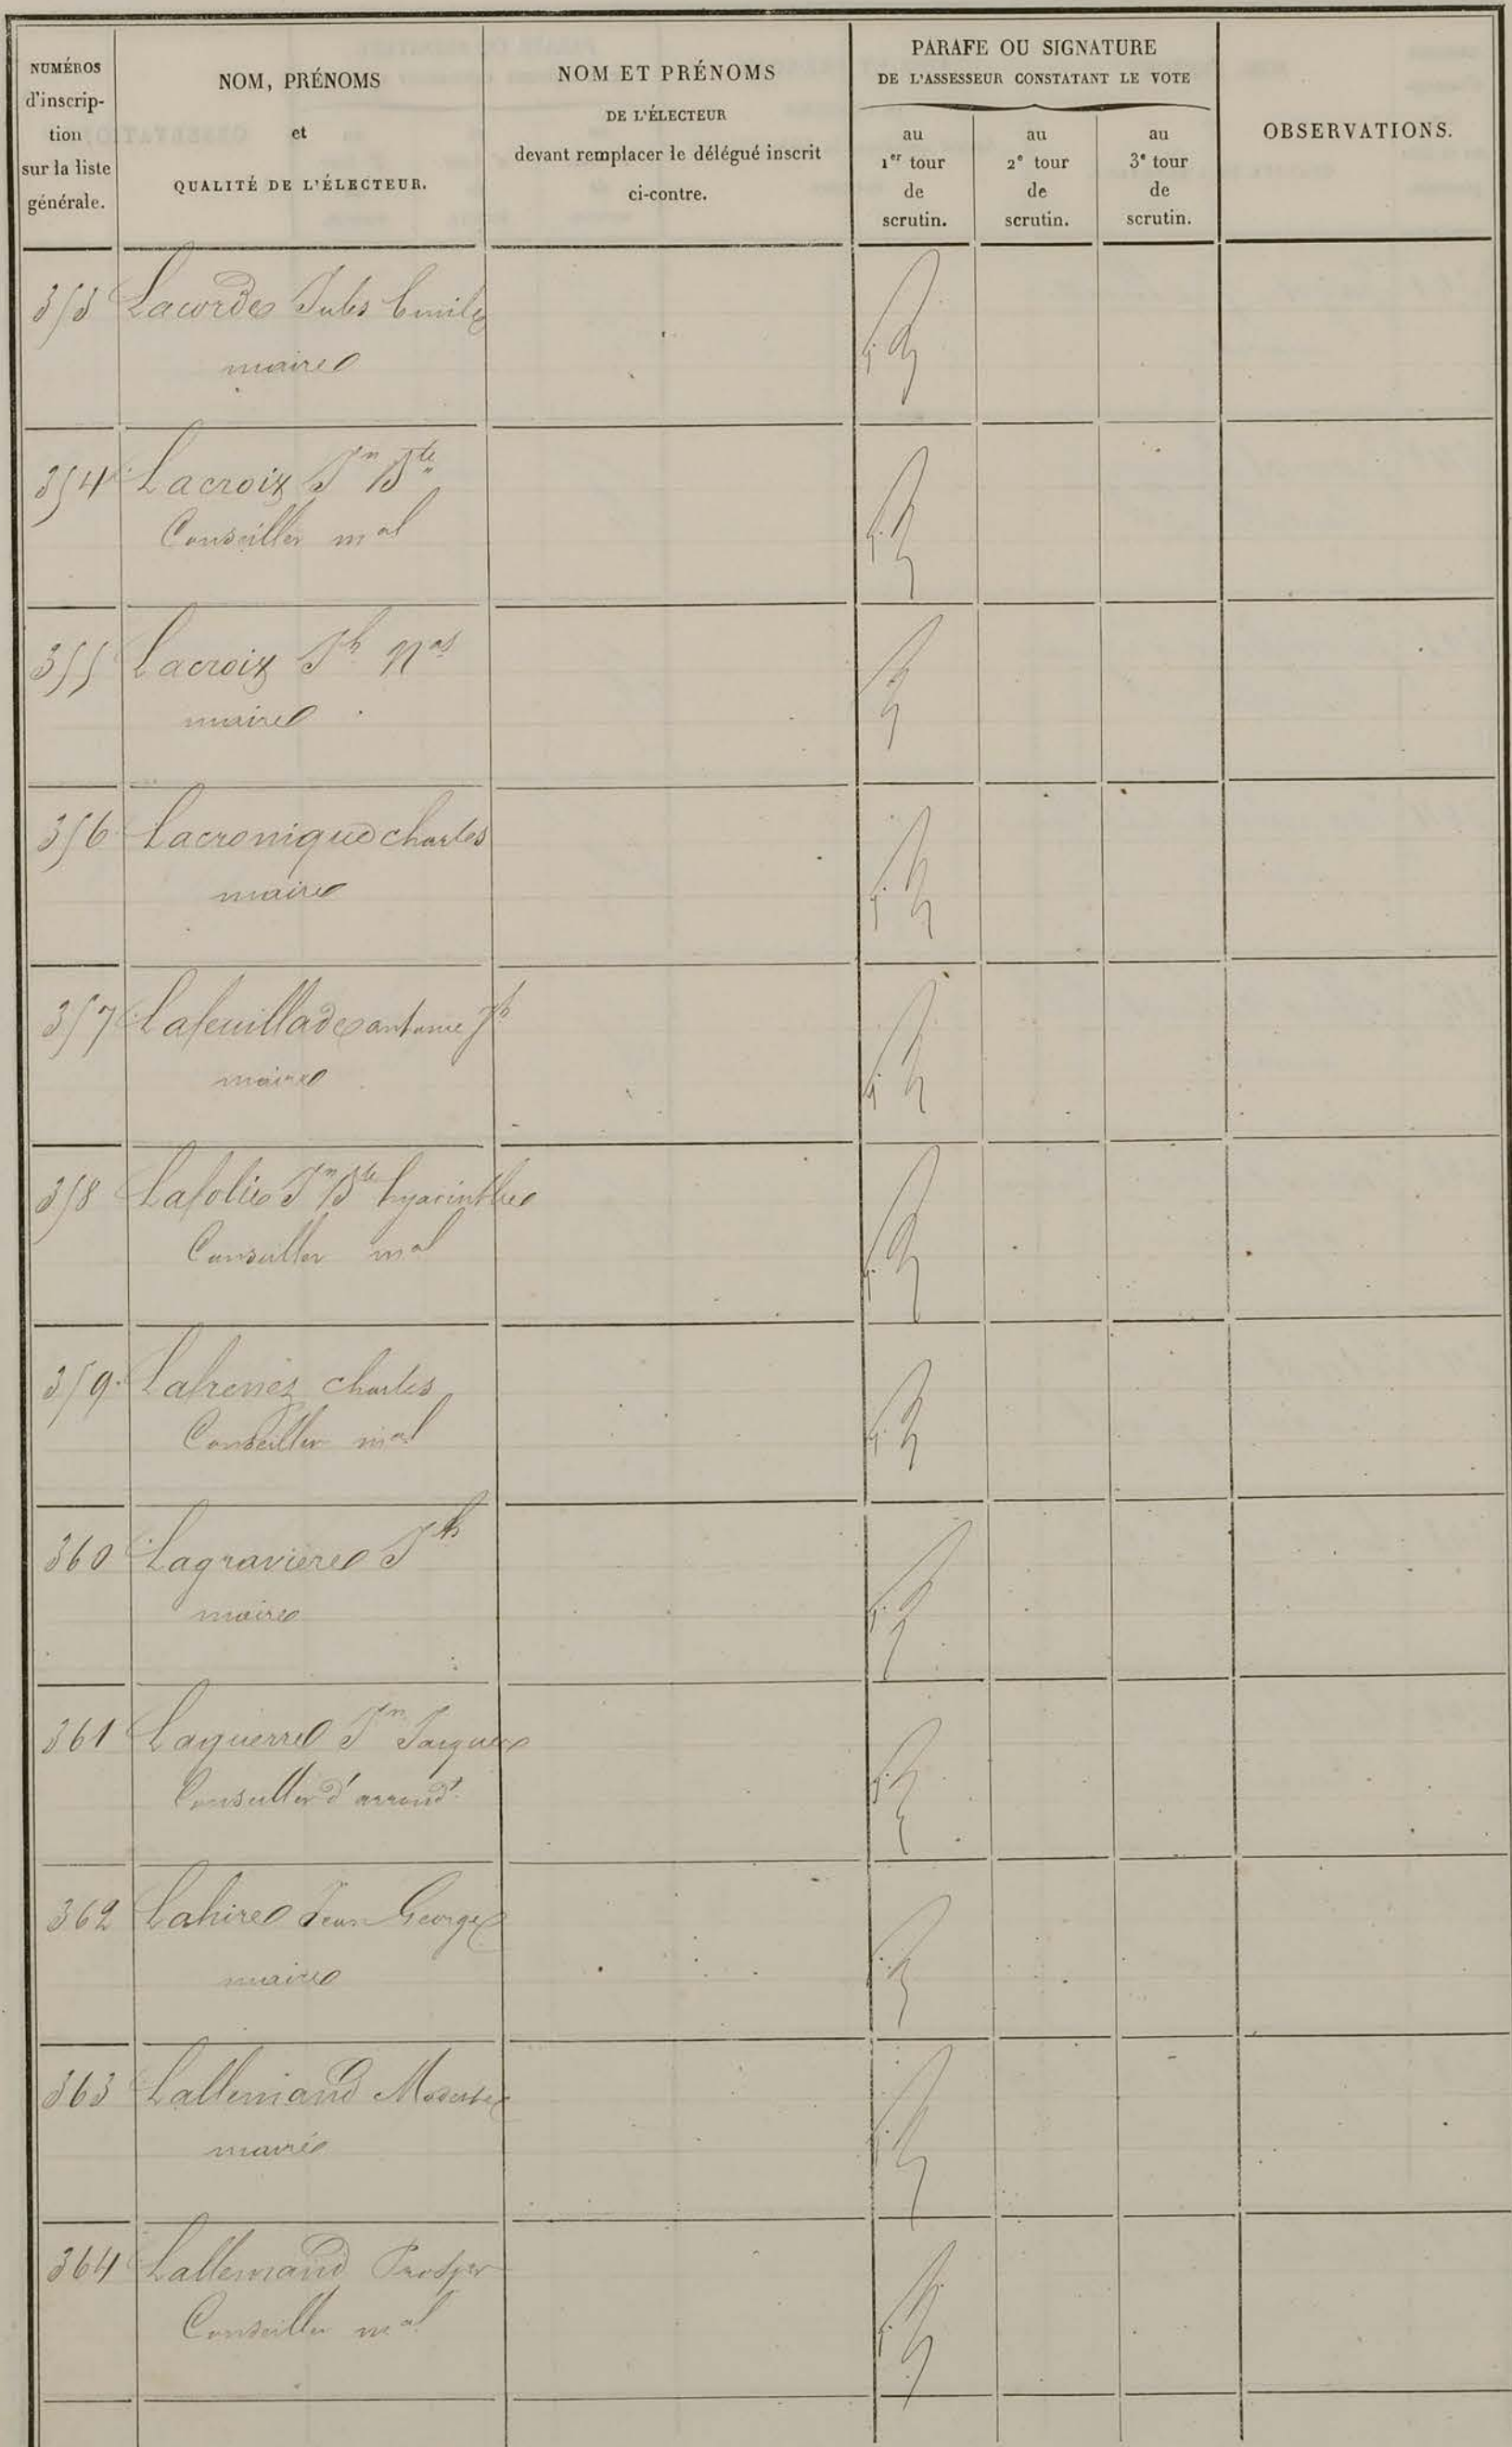 NUMÉROS
d'inscrip-
tion
sur la liste
générale.
NOM, PRÉNOMS
et
QUALITÉ DE L'ÉLECTEUR.
NOM ET PRÉNOMS
DE L'ÉLECTEUR
devant remplacer le délégué inscrit
ci-contre.
PARAFE OU SIGNATURE
DE L'ASSESSEUR CONSTATANT LE VOTE
au
1er tour
de
scrutin.
au
2e tour
de
scrutin.
au
3e tour
de
scrutin.
OBSERVATIONS.
353 Lacorde Jules Emile
maire
354 Lacroix Jn Bte
Conseiller mal
355 Lacroix Jh Nas
maire
356 Lacronique charles
maire
357 Lafeuillade antoine Jh
maire
358 Lafolie Jn Bte hyacinthe
Conseiller mal
359 Lafrenez charles
Conseiller mal
360 Lagravière Jh
maire
361 Laguerre Jn Jacques
Conseiller d'arrondt
362 Lahire Jean George
maire
363 Lallemand Modeste
maire
364 Lallemand Prosper
Conseiller mal